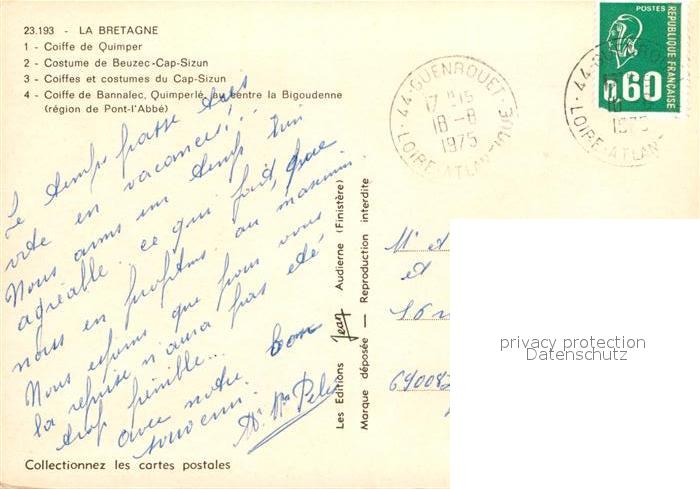 23.193 - LA BRETAGNE
1 - Coiffe de Quimper
2 - Costume de Beuzec-Cap-Sizun
3 - Coiffes et costumes du Cap-Sizun
4 - Coiffe de Bannalec, Quimperlé, au centre la Bigoudenne
(région de Pont-l'Abbé)
Le temps passe très
vite en vacances!..
Nous avons un temps
agréable. ce qui fait, que
nous en profitons au maximum.
Nous espérons que pour vous
la reprise n'aura pas été
trop pénible... bon
avec notre
souvenir.
Les Editions Jean Audierne (Finistère)
Marque déposée — Reproduction interdite
44-GUENROUET
17H15
18-8
1975
LOIRE-ATLANTIQUE
POSTES
REPUBLIQUE FRANÇAISE
0,60
44-GUENROUET
1975
LOIRE-ATLAN
et
16
privacy protection
Datenschutz
Collectionnez les cartes postales